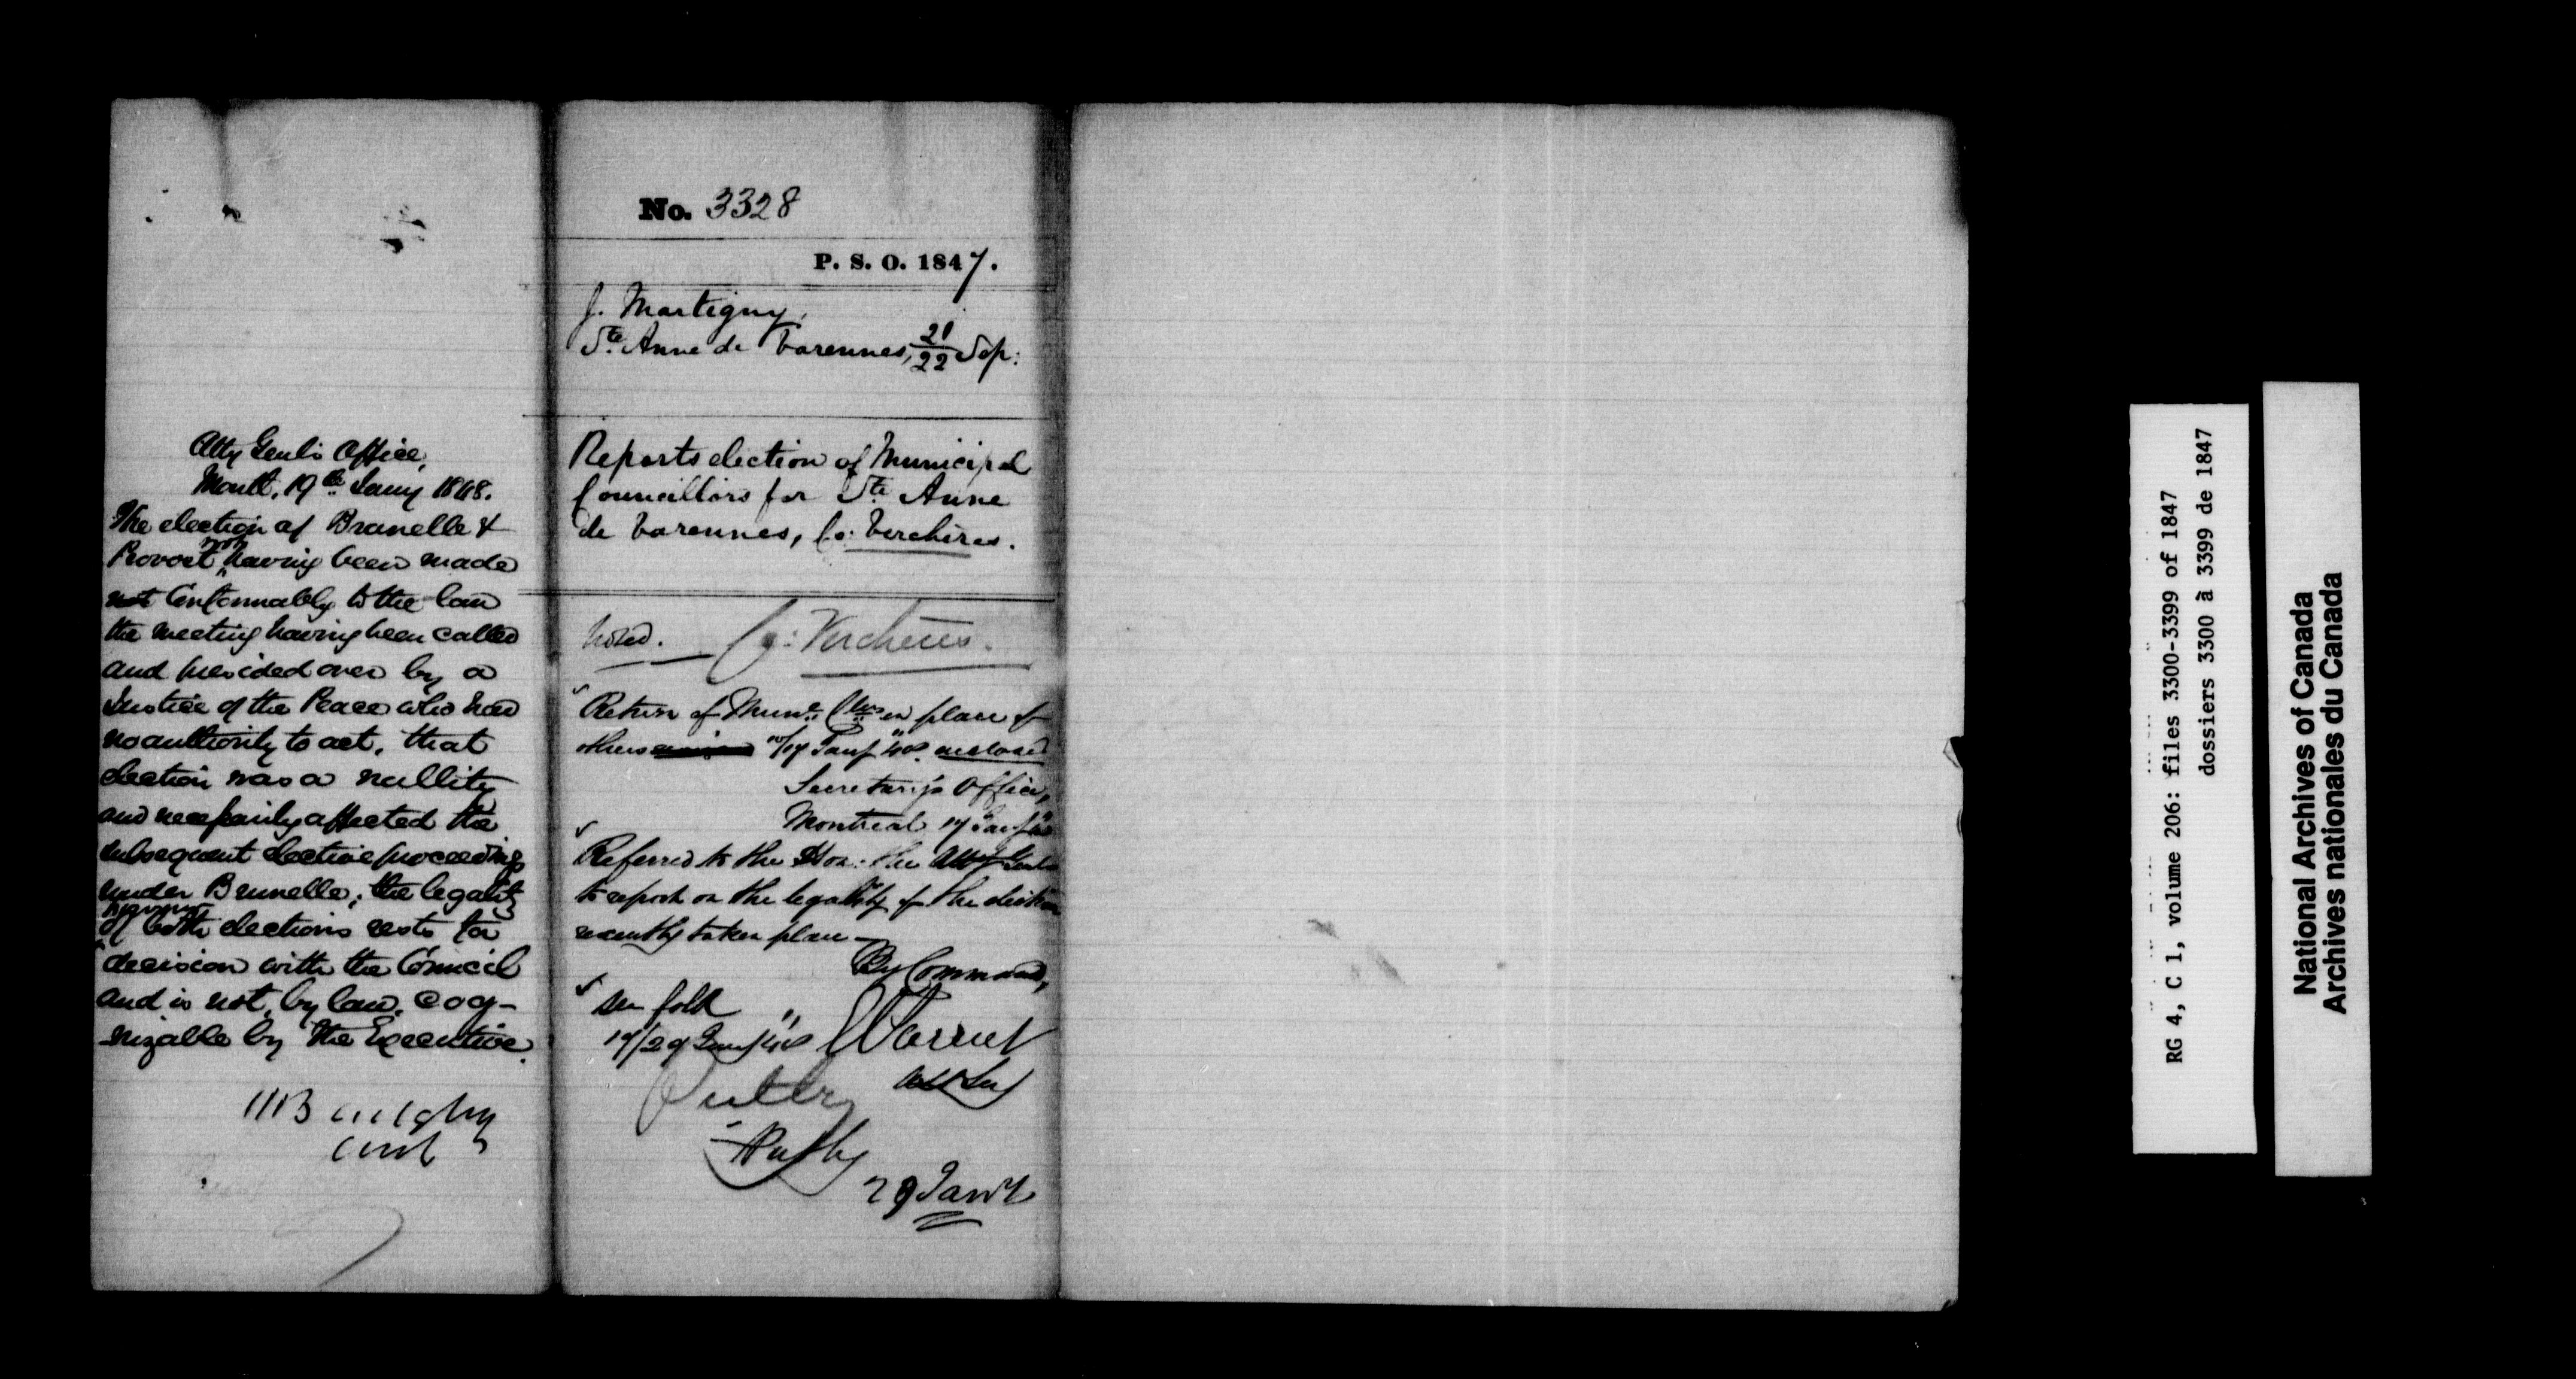 Atty Genl's Office,
Montl, 19th Jany 1848.
The election of Brunelle &
Provost not having been made
not Conformably to the law
the meeting having been called
and presided over by a
Justice of the Peace who had
no authority to act, that
election was a nullity
and necessarily affected the
subsequent election proceedings
under Brunelle; the legality
however
of both elections rests for
decision with the Council
and is not, by law, cog-
nizable by the Executive.
No. 3328
P. S. O. 1847.
J. Martigny,
Ste Anne de Varennes, 21/22 Sep:
Reports election of Municipal
Councillors for Ste Anne
de Varennes, Co: Verchères.
Noted. Co: Verchères.
Return of Munl Cllrs in place of
others Jany 48 enclosed
Secretary's Office,
Montreal 17 Jany 48
Referred to the Hon: the Atty Genl
to report on the legality of the election
recently taken place
By Command,
See fold
19/29 Jany 48
Asst Secy
29 Jany
RG 4, C 1, volume 206: files 3300-3399 of 1847
dossiers 3300 à 3399 de 1847
National Archives of Canada
Archives nationales du Canada